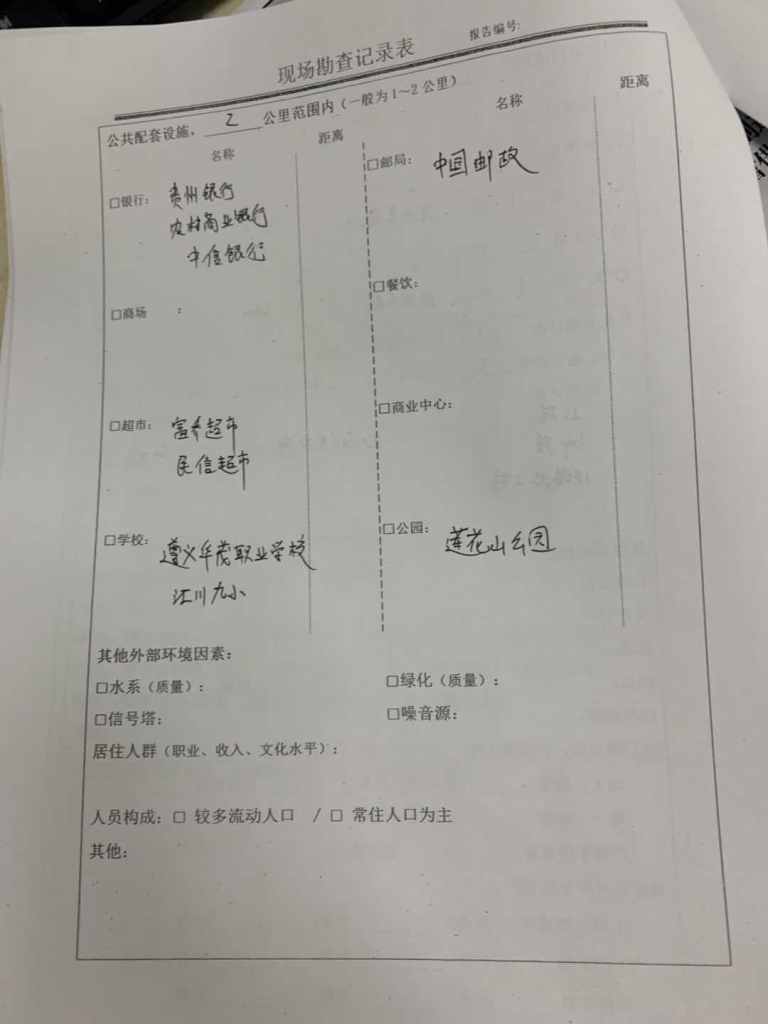 现场勘查记录表
报告编号:
公共配套设施，2公里范围内（一般为1～2公里）
名称 距离 名称 距离
□银行： 贵州银行
农村商业银行
中信银行
□邮局： 中国邮政
□商场 ：
□餐饮：
□超市： 超市
民信超市
□商业中心：
□学校： 遵义华茂职业学校
汇川九小
□公园： 莲花山公园
其他外部环境因素：
□水系（质量）： □绿化（质量）：
□信号塔： □噪音源：
居住人群（职业、收入、文化水平）：
人员构成：□ 较多流动人口 / □ 常住人口为主
其他：